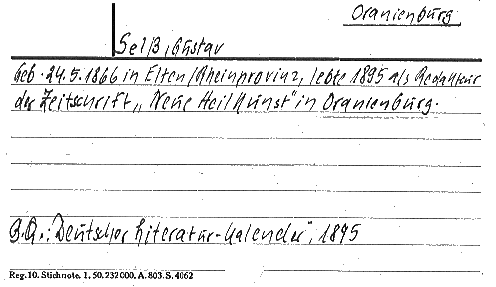 Oranienburg
Selß, Gustav
Geb. 24.5.1866 in Elten/Rheinprovinz, lebte 1895 als Redakteur
der Zeitschrift „Neue Heilkunst" in Oranienburg.
B.Qu.: „Deutscher Literatur-Kalender", 1895
Reg. 10. Stichnote. 1. 50. 232 000. A. 803. S. 4062